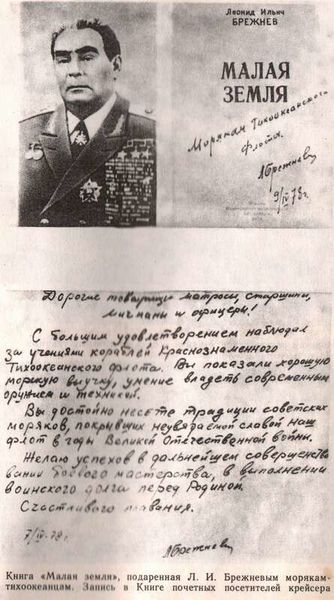 Леонид Ильич
БРЕЖНЕВ
МАЛАЯ
ЗЕМЛЯ
Морякам Тихоокеанского
флота.
Л Брежнев
9/IV 78 г.
Дорогие товарищи матросы, старшины,
мичманы и офицеры!
С большим удовлетворением наблюдал
за учениями кораблей Краснознаменного
Тихоокеанского флота. Вы показали хорошую
морскую выучку, умение владеть современным
оружием и техникой.
Вы достойно несете традиции советских
моряков, покрывших неувядаемой славой наш
флот в годы Великой Отечественной войны.
Желаю успехов в дальнейшем совершенство
вании боевого мастерства, в выполнении
воинского долга перед Родиной.
Счастливого плавания.
7/IV-78 г.
Л Брежнев
Книга «Малая земля», подаренная Л. И. Брежневым морякам-
тихоокеанцам. Запись в Книге почетных посетителей крейсера